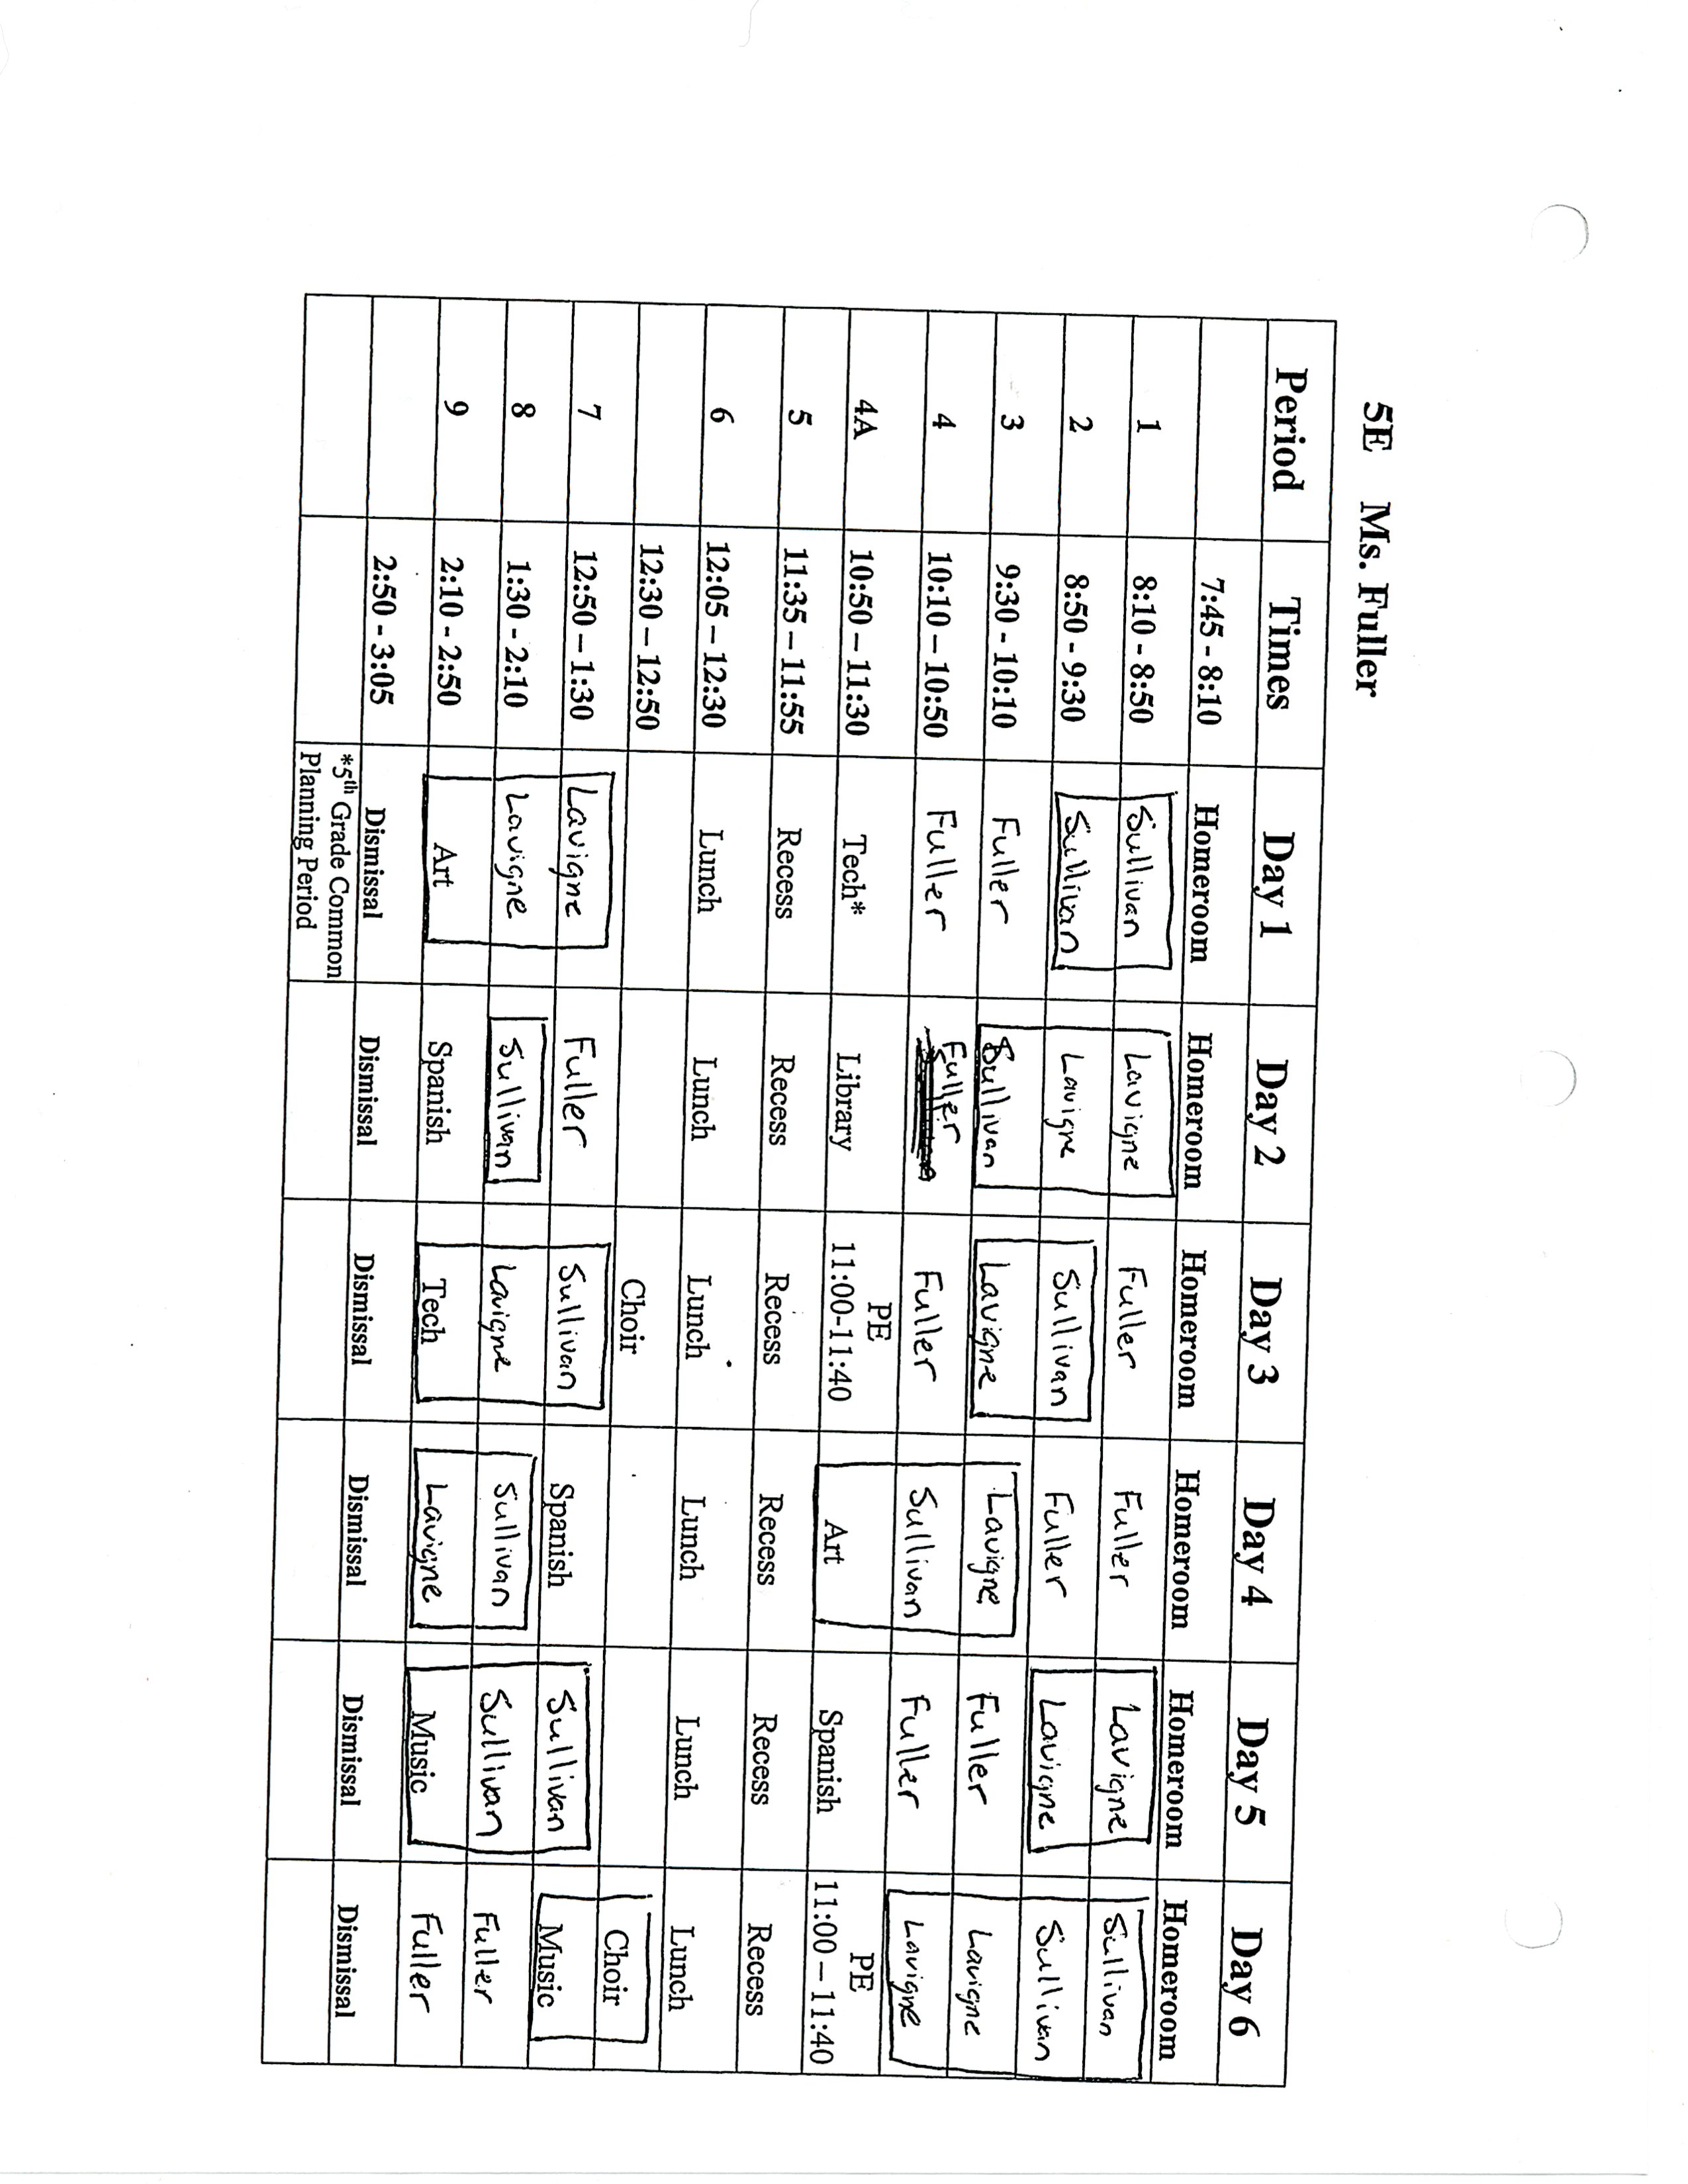 5E Ms. Fuller
Period Times Day 1 Day 2 Day 3 Day 4 Day 5 Day 6
7:45 - 8:10 Homeroom Homeroom Homeroom Homeroom Homeroom Homeroom
1 8:10 - 8:50 Sullivan Lavigne Fuller Fuller Lavigne Sullivan
2 8:50 - 9:30 Sullivan Lavigne Sullivan Fuller Lavigne Sullivan
3 9:30 - 10:10 Fuller Sullivan Lavigne Lavigne Fuller Lavigne
4 10:10 – 10:50 Fuller Fuller Fuller Sullivan Fuller Lavigne
4A 10:50 – 11:30 Tech* Library PE 11:00-11:40 Art Spanish PE 11:00 – 11:40
5 11:35 – 11:55 Recess Recess Recess Recess Recess Recess
6 12:05 – 12:30 Lunch Lunch Lunch Lunch Lunch Lunch
12:30 – 12:50 Choir Choir
7 12:50 – 1:30 Lavigne Fuller Sullivan Spanish Sullivan Music
8 1:30 - 2:10 Lavigne Sullivan Lavigne Sullivan Sullivan Fuller
9 2:10 - 2:50 Art Spanish Tech Lavigne Music Fuller
2:50 - 3:05 Dismissal Dismissal Dismissal Dismissal Dismissal Dismissal
*5th Grade Common
Planning Period